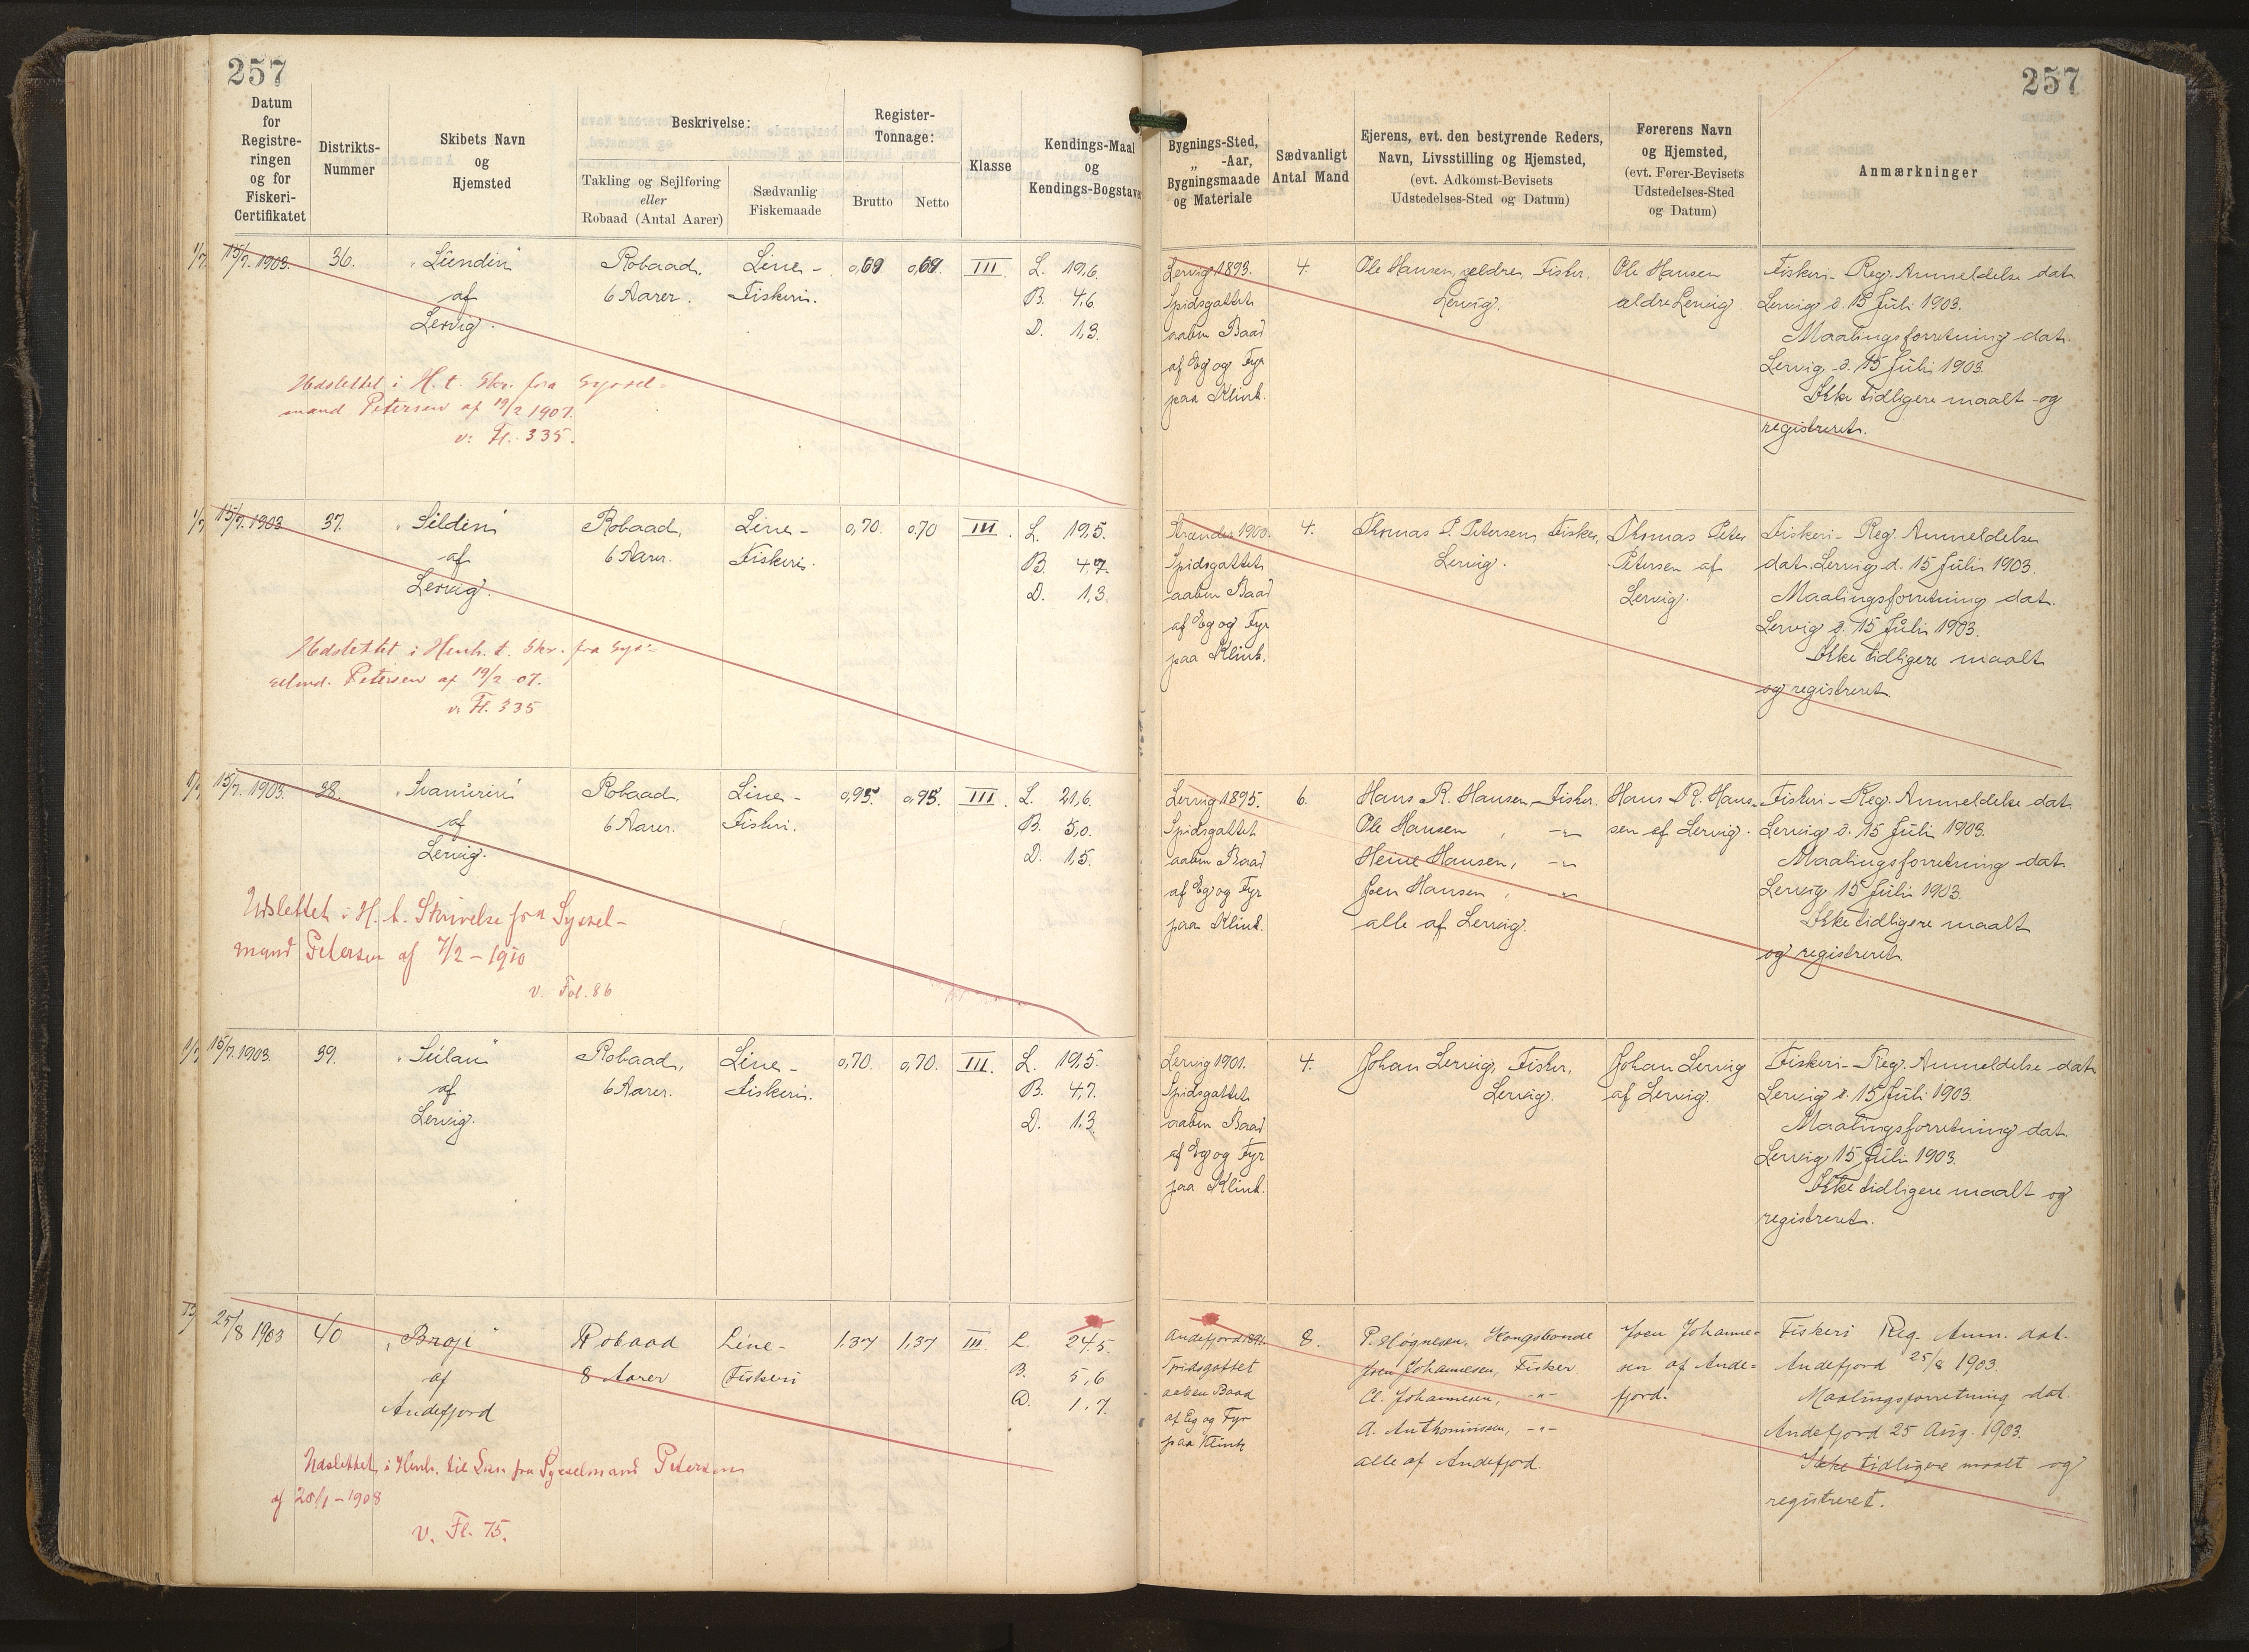 257
257
Datum
for
Registre-
ringen
og for
Fiskeri-
Certifikatet
Distrikts-
Nummer
Skibets Navn
og
Hjemsted
Beskrivelse:
Takling og Sejlføring
eller
Robaad (Antal Aarer)
Sædvanlig
Fiskemaade
Register-
Tonnage:
Brutto
Netto
Klasse
Kendings-Maal
og
Kendings-Bogstaver
Bygnings-Sted,
„ -Aar,
Bygningsmaade
og Materiale
Sædvanligt
Antal Mand
Ejerens, evt. den bestyrende Reders,
Navn, Livsstilling og Hjemsted,
(evt. Adkomst-Bevisets
Udstedelses-Sted og Datum)
Førerens Navn
og Hjemsted,
(evt. Fører-Bevisets
Udstedelses-Sted
og Datum)
Anmærkninger
15/7. 1903. 36. Robaad, Line- 0,69 0,69 III L. 19,6.
af 6 Aarer. Fiskeri. B. 4,6
Lervig. D. 1,3.
Udslettet i H. t. Skr. fra Syssel-
mand Petersen af 19/2 1907.
v. Fl. 335.
Lervig 1893. 4. Ole Hansen, ældre, Fisker. Ole Hansen Fiskeri-Reg. Anmeldelse dat.
Spidsgattet Lervig. ældre Lervig Lervig d. 15 Juli 1903.
aaben Baad Maalingsforretning dat.
af Eg og Fyr Lervig d. 15 Juli 1903.
paa Klink. Ikke tidligere maalt og
registreret.
15/7. 1903 37. Robaad, Line- 0,70. 0,70 III. L. 19,5.
af 6 Aarer. Fiskeri. B. 4,7.
Lervig. D. 1,3.
Udslettet i Henh. t. Skr. fra Sys-
selmd. Petersen af 19/2 07.
v. Fl. 335
1900. 4. Thomas P. Petersen, Fisker, Thomas Peter Fiskeri-Reg. Anmeldelse
Spidsgattet Lervig. Petersen af dat. Lervig d. 15 Juli 1903.
aaben Baad Lervig. Maalingsforretning dat.
af Eg og Fyr Lervig d. 15 Juli 1903.
paa Klink. Ikke tidligere maalt
og registreret.
15/7. 1903. 38. Robaad, Line- 0,95. 0,95. III. L. 21,6.
af 6 Aarer. Fiskeri. B. 5,0.
Lervig. D. 1,5.
Udslettet i H. t. Skrivelse fra Syssel-
mand Petersen af 7/2 - 1910
v. Fol. 86
Lervig 1895. 6. Hans R. Hansen, Fisker. Hans R. Han- Fiskeri-Reg. Anmeldelse dat.
Spidsgattet Ole Hansen, -"- sen af Lervig. Lervig d. 15 Juli 1903.
aaben Baad Heine Hansen, -"- Maalingsforretning dat.
af Eg og Fyr Joen Hansen, -"- Lervig 15 Juli 1903.
paa Klink. alle af Lervig. Ikke tidligere maalt
og registreret.
15/7. 1903. 39. Robaad, Line- 0,70. 0,70. III. L. 19,5.
af 6 Aarer. Fiskeri. B. 4,7.
Lervig. D. 1,3
Lervig 1901. 4. Johan Lervig, Fisker, Johan Lervig Fiskeri-Reg. Anmeldelse dat.
Spidsgattet Lervig. af Lervig. Lervig d. 15 Juli 1903.
aaben Baad Maalingsforretning dat.
af Eg og Fyr Lervig 15 Juli 1903.
paa Klink. Ikke tidligere maalt og
registreret.
25/8 1903 40 Robaad Line- 1.37 1,37 III. L. 24.5.
af 8 Aarer Fiskeri B. 5,6
Andefjord D. 1,7.
Udslettet i Henh. til Skr. fra Sysselmand Petersen
af 28/1 - 1908
v. Fl. 75.
Andefjord 8. P. Høgnesen, Kongsbonde Joen Johanne- Fiskeri Reg. Anm. dat.
Spidsgattet Joen Johannesen, Fisker sen af Ande- Andefjord 25/8 1903.
aaben Baad Johannesen, -"- fjord. Maalingsforretning dat.
af Eg og Fyr A. -"- Andefjord 25 Aug. 1903.
paa Klink alle af Andefjord. Ikke tidligere maalt og
registreret.